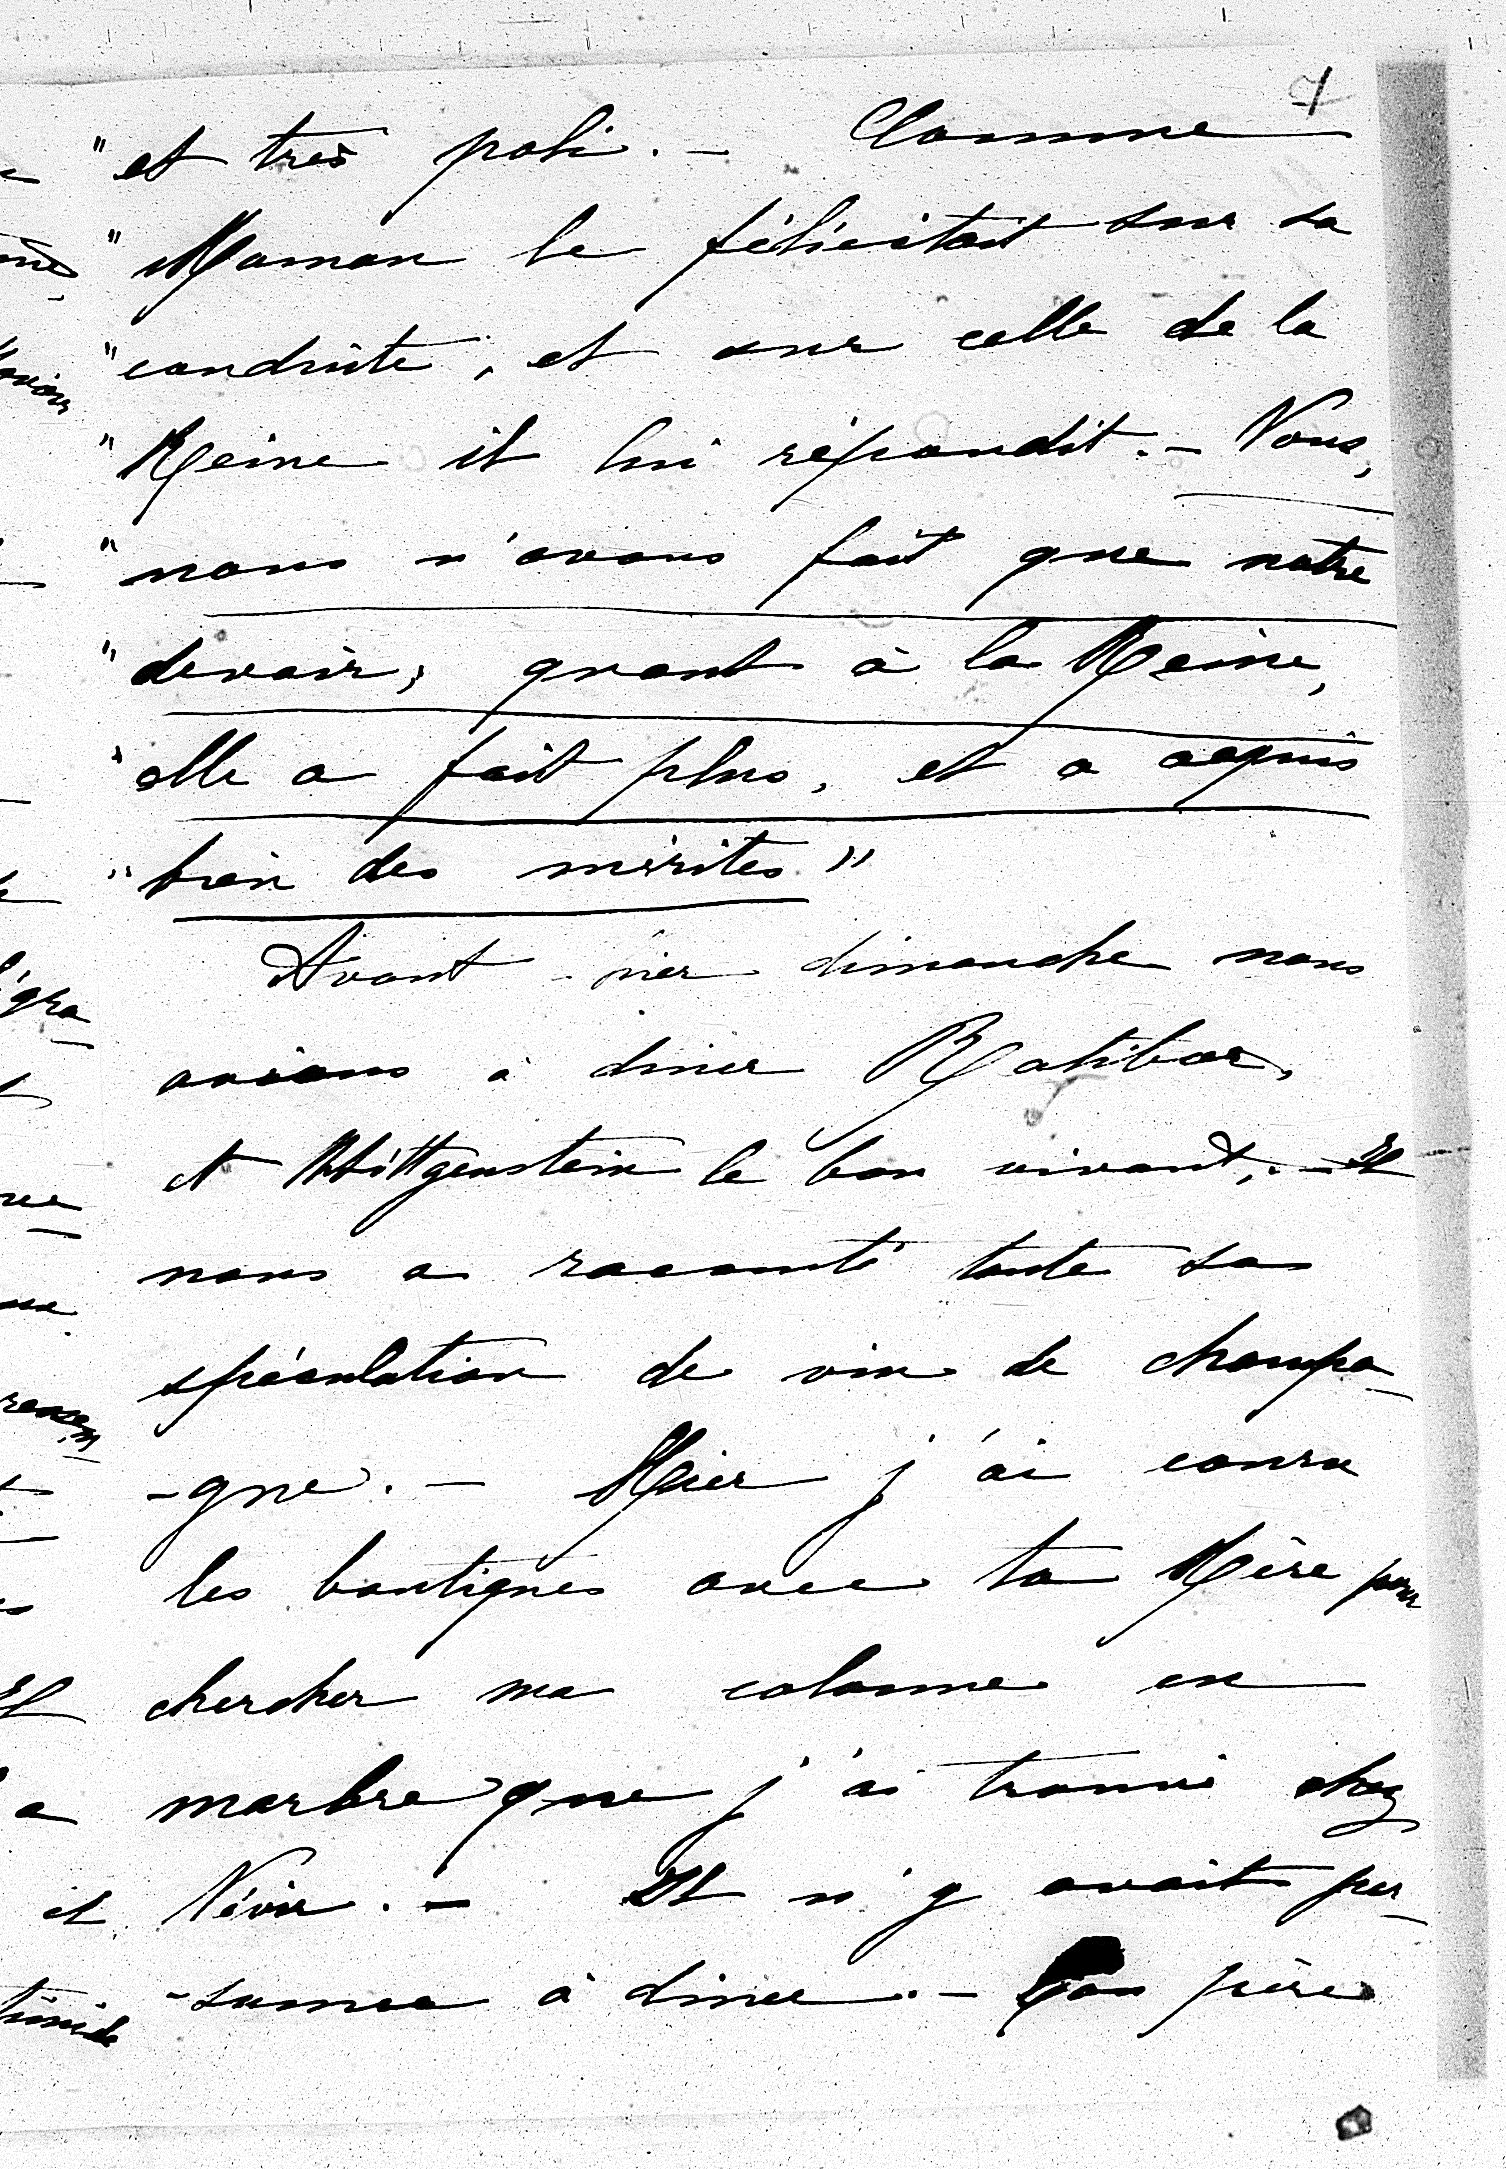 7
" et très poli. – Comme
" Maman le félicitait sur sa
" conduite, et sur celle de la
" Reine il lui répondit. – Nous,
" nous n'avons fait que notre
" devoir; quant à la Reine,
" elle a fait plus, et a acquis
" bien des mérites "
Avant-hier dimanche nous
avions à diner Ratibor,
et Wittgenstein le bon vivant, . – Il
nous a raconté toute sa
spéculation de vin de champa-
-gne. – Hier j'ai couru
les boutiques avec ta Mère pour
chercher ma colonne en
marbre que j'ai trouvé chez
. – Il n'y avait per-
-sonne à diner. – Ton père